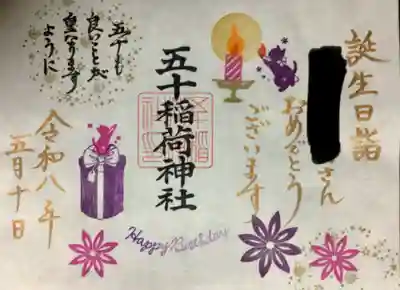 誕生日詣
さん
おめでとう
ございます
五十稲荷神社
Happy Birthday
五十も
良いことが
重なります
ように
令和八年
五月十日